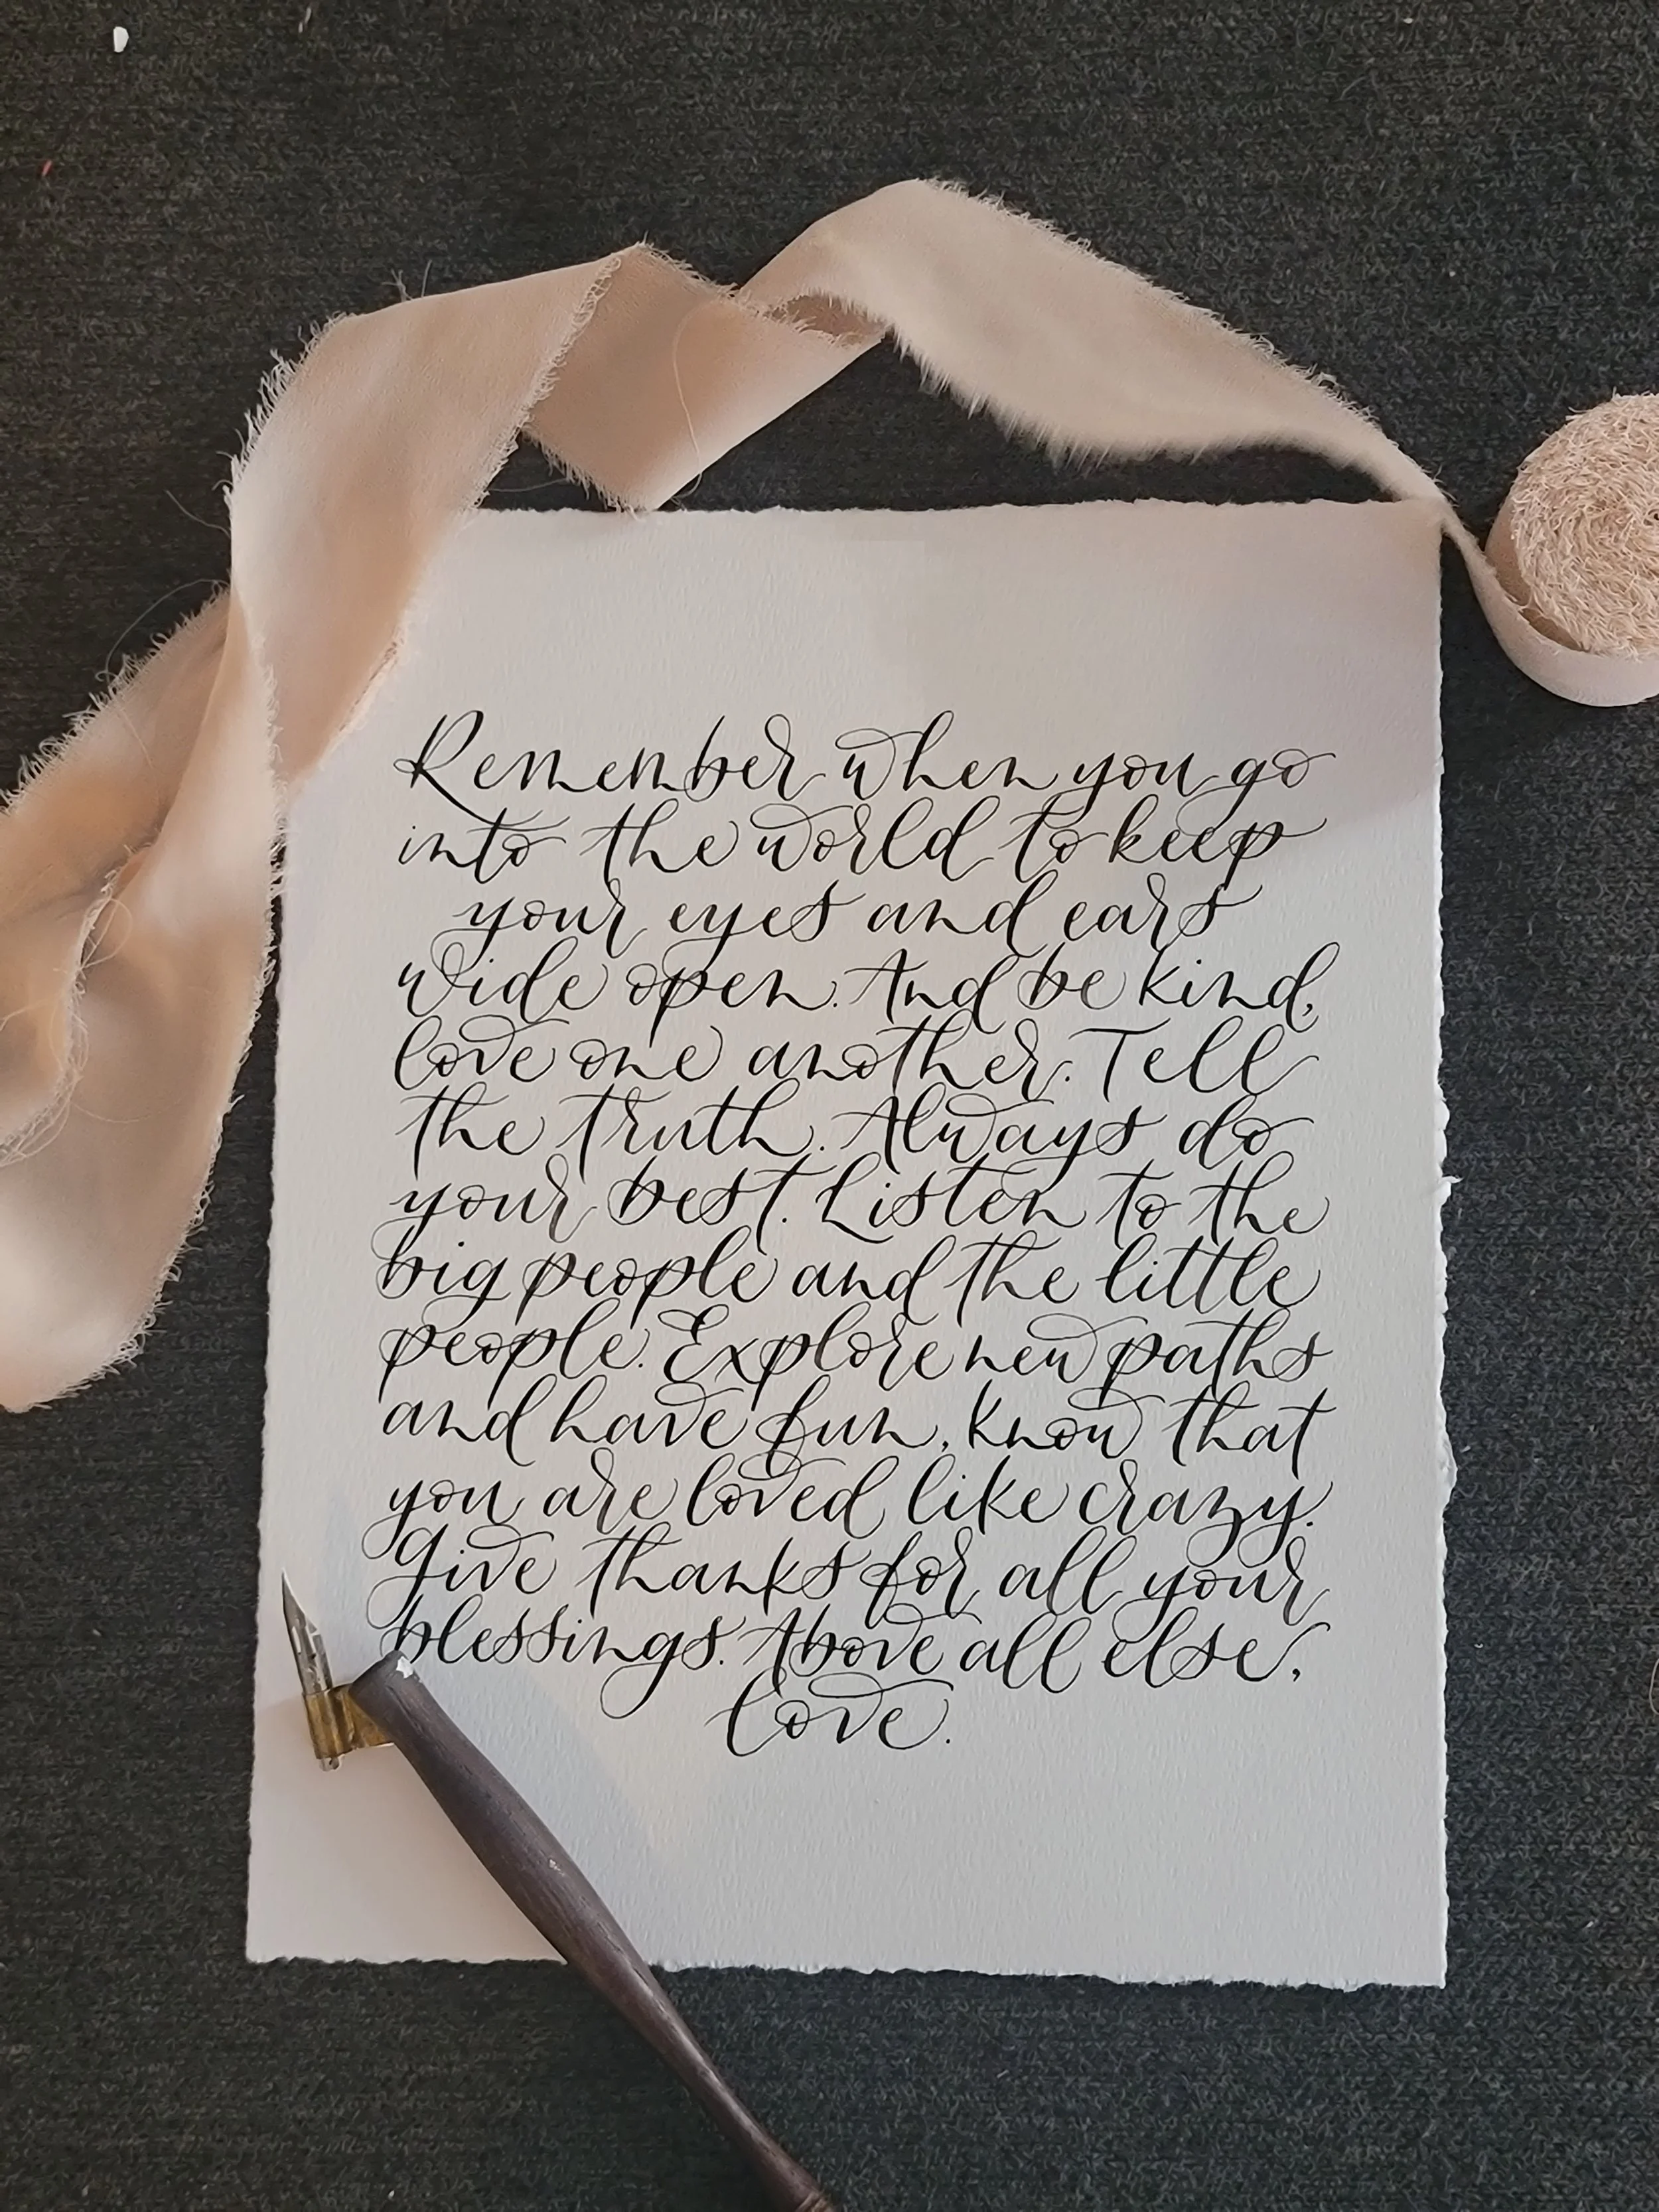 Remember when you go
into the world to keep
your eyes and ears
wide open. And be kind,
love one another. Tell
the truth. Always do
your best. Listen to the
big people and the little
people. Explore new paths
and have fun. Know that
you are loved like crazy.
Give thanks for all your
blessings. Above all else,
love.